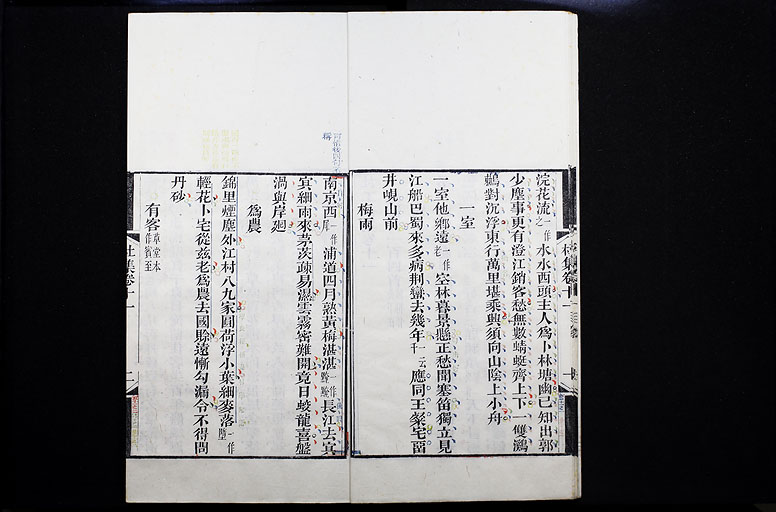 浣花流之一作水水西頭主人為卜林塘幽已知出郭
少塵事更有澄江銷客愁無數蜻蜓齊上下一雙鸂
鶒對沉浮東行萬里堪乘興須向山陰上小舟
一室
一室他鄉遠老一作空林暮景懸正愁聞塞笛獨立見
江船巴蜀來多病荊蠻去幾年千一云應同王粲宅畱
井峴山前
梅雨
南京西岸一作浦道四月熟黃梅湛湛一作長江去冥
冥細雨來茅茨疎易濕雲霧密難開竟日蛟龍喜盤
渦與岸廻
為農
錦里煙塵外江村八九家圓荷浮小葉細麥落一作
輕花卜宅從茲老為農去國賒遠慚勾漏令不得問
丹砂
有客草堂本作賓至
杜集卷十一
二